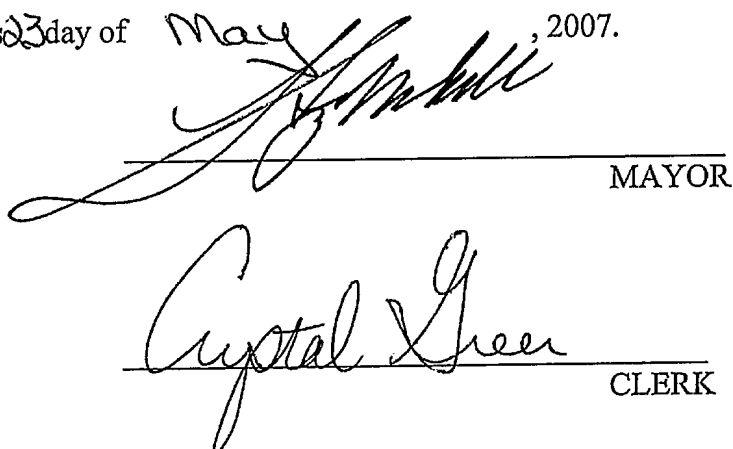 s 23 day of May, 2007.
MAYOR
Crystal Green
CLERK